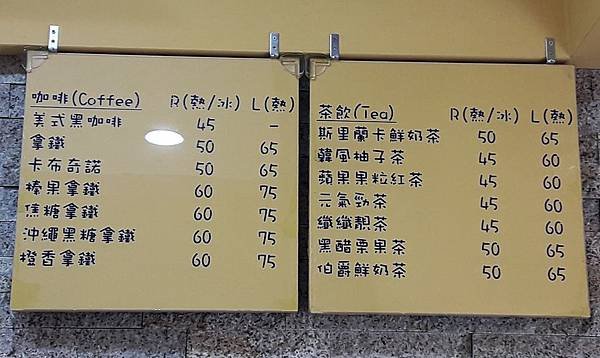 咖啡(Coffee) R(熱/冰) L(熱)
美式黑咖啡 45 –
拿鐵 50 65
卡布奇諾 50 65
榛果拿鐵 60 75
焦糖拿鐵 60 75
沖繩黑糖拿鐵 60 75
橙香拿鐵 60 75
茶飲(Tea) R(熱/冰) L(熱)
斯里蘭卡鮮奶茶 50 65
韓風柚子茶 45 60
蘋果果粒紅茶 45 60
元氣勁茶 45 60
纖纖靚茶 45 60
黑醋栗果茶 50 65
伯爵鮮奶茶 50 65